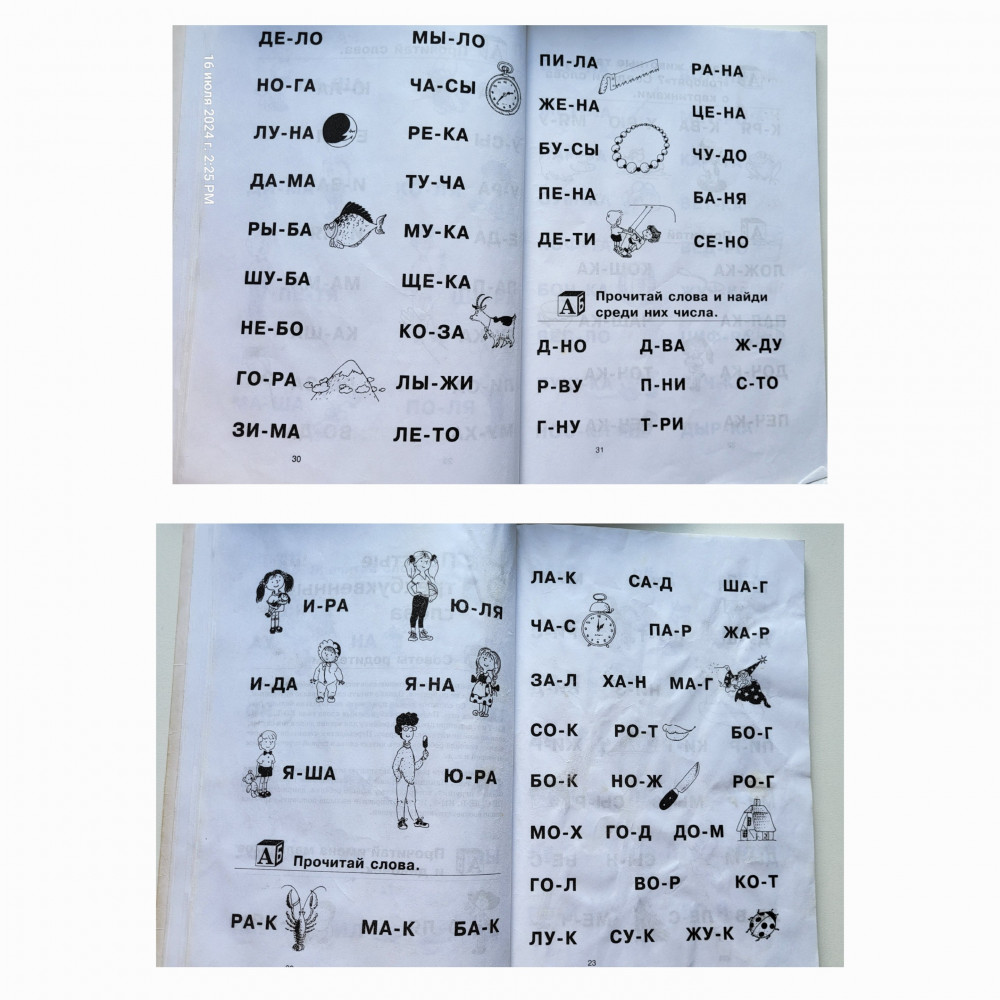 16 июля 2024 г. 2:25 PM
ДЕ-ЛО МЫ-ЛО
НО-ГА ЧА-СЫ
ЛУ-НА РЕ-КА
ДА-МА ТУ-ЧА
РЫ-БА МУ-КА
ШУ-БА ЩЕ-КА
НЕ-БО КО-ЗА
ГО-РА ЛЫ-ЖИ
ЗИ-МА ЛЕ-ТО
30
ПИ-ЛА РА-НА
ЖЕ-НА ЦЕ-НА
БУ-СЫ ЧУ-ДО
ПЕ-НА БА-НЯ
ДЕ-ТИ СЕ-НО
Прочитай слова и найди
среди них числа.
Д-НО Д-ВА Ж-ДУ
Р-ВУ П-НИ С-ТО
Г-НУ Т-РИ
31
И-РА Ю-ЛЯ
И-ДА Я-НА
Я-ША Ю-РА
Прочитай слова.
РА-К МА-К БА-К
ЛА-К СА-Д ША-Г
ЧА-С ПА-Р ЖА-Р
ЗА-Л ХА-Н МА-Г
СО-К РО-Т БО-Г
БО-К НО-Ж РО-Г
МО-Х ГО-Д ДО-М
ГО-Л ВО-Р КО-Т
ЛУ-К СУ-К ЖУ-К
23